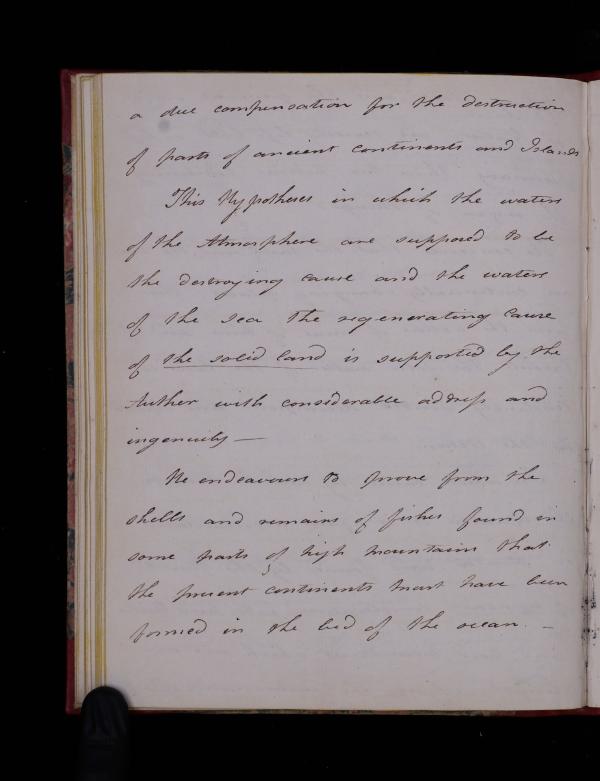 a due compensation for the destruction
of parts of ancient continents and Islands
This Hypotheses in which the waters
of the Atmosphere are supposed to be
the destroying cause and the waters
of the sea the regenerating cause
of the solid land is supported by the
Author with considerable address and
ingenuity —
He endeavours to prove from the
shells and remains of fishes found in
some parts of high mountains that
the present continents must have been
formed in the bed of the ocean. —